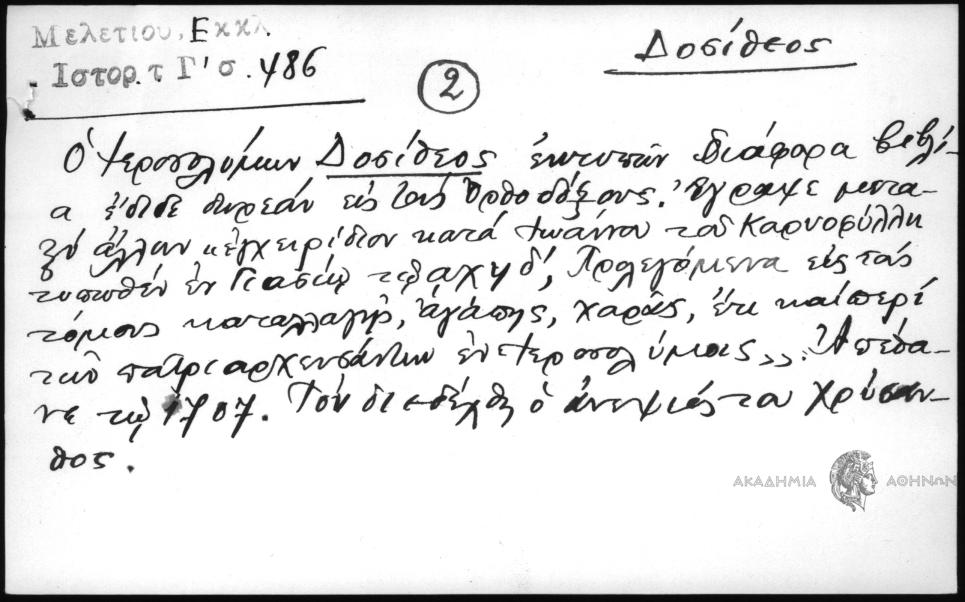 Μελετίου, Εκκλ.
Ιστορ. τ Γ' σ. 486
Δοσίθεος
2
Ὁ Ἱεροσολύμων Δοσίθεος ἐκτυπῶν διάφορα βιβλί-
α ἔδιδε δωρεάν εἰς τούς Ὀρθοδόξους. Ἔγραψε μετα-
ξύ ἄλλων "ἐγχειρίδιον κατά Ἰωάννου τοῦ Καρυοφύλλη
τυπωθέν ἐν Γιασίῳ τῷ αχϟδ', Προλεγόμενα εἰς τούς
τόμους καταλλαγῆς, ἀγάπης, χαρᾶς, ἔτι καί περί
τῶν πατριαρχευσάντων ἐν Ἱεροσολύμοις». Ἀπέθα-
νε τῷ 1707. Τόν διεδέχθη ὁ ἀνεψιός του Χρύσαν-
θος.
ΑΚΑΔΗΜΙΑ ΑΘΗΝΩΝ